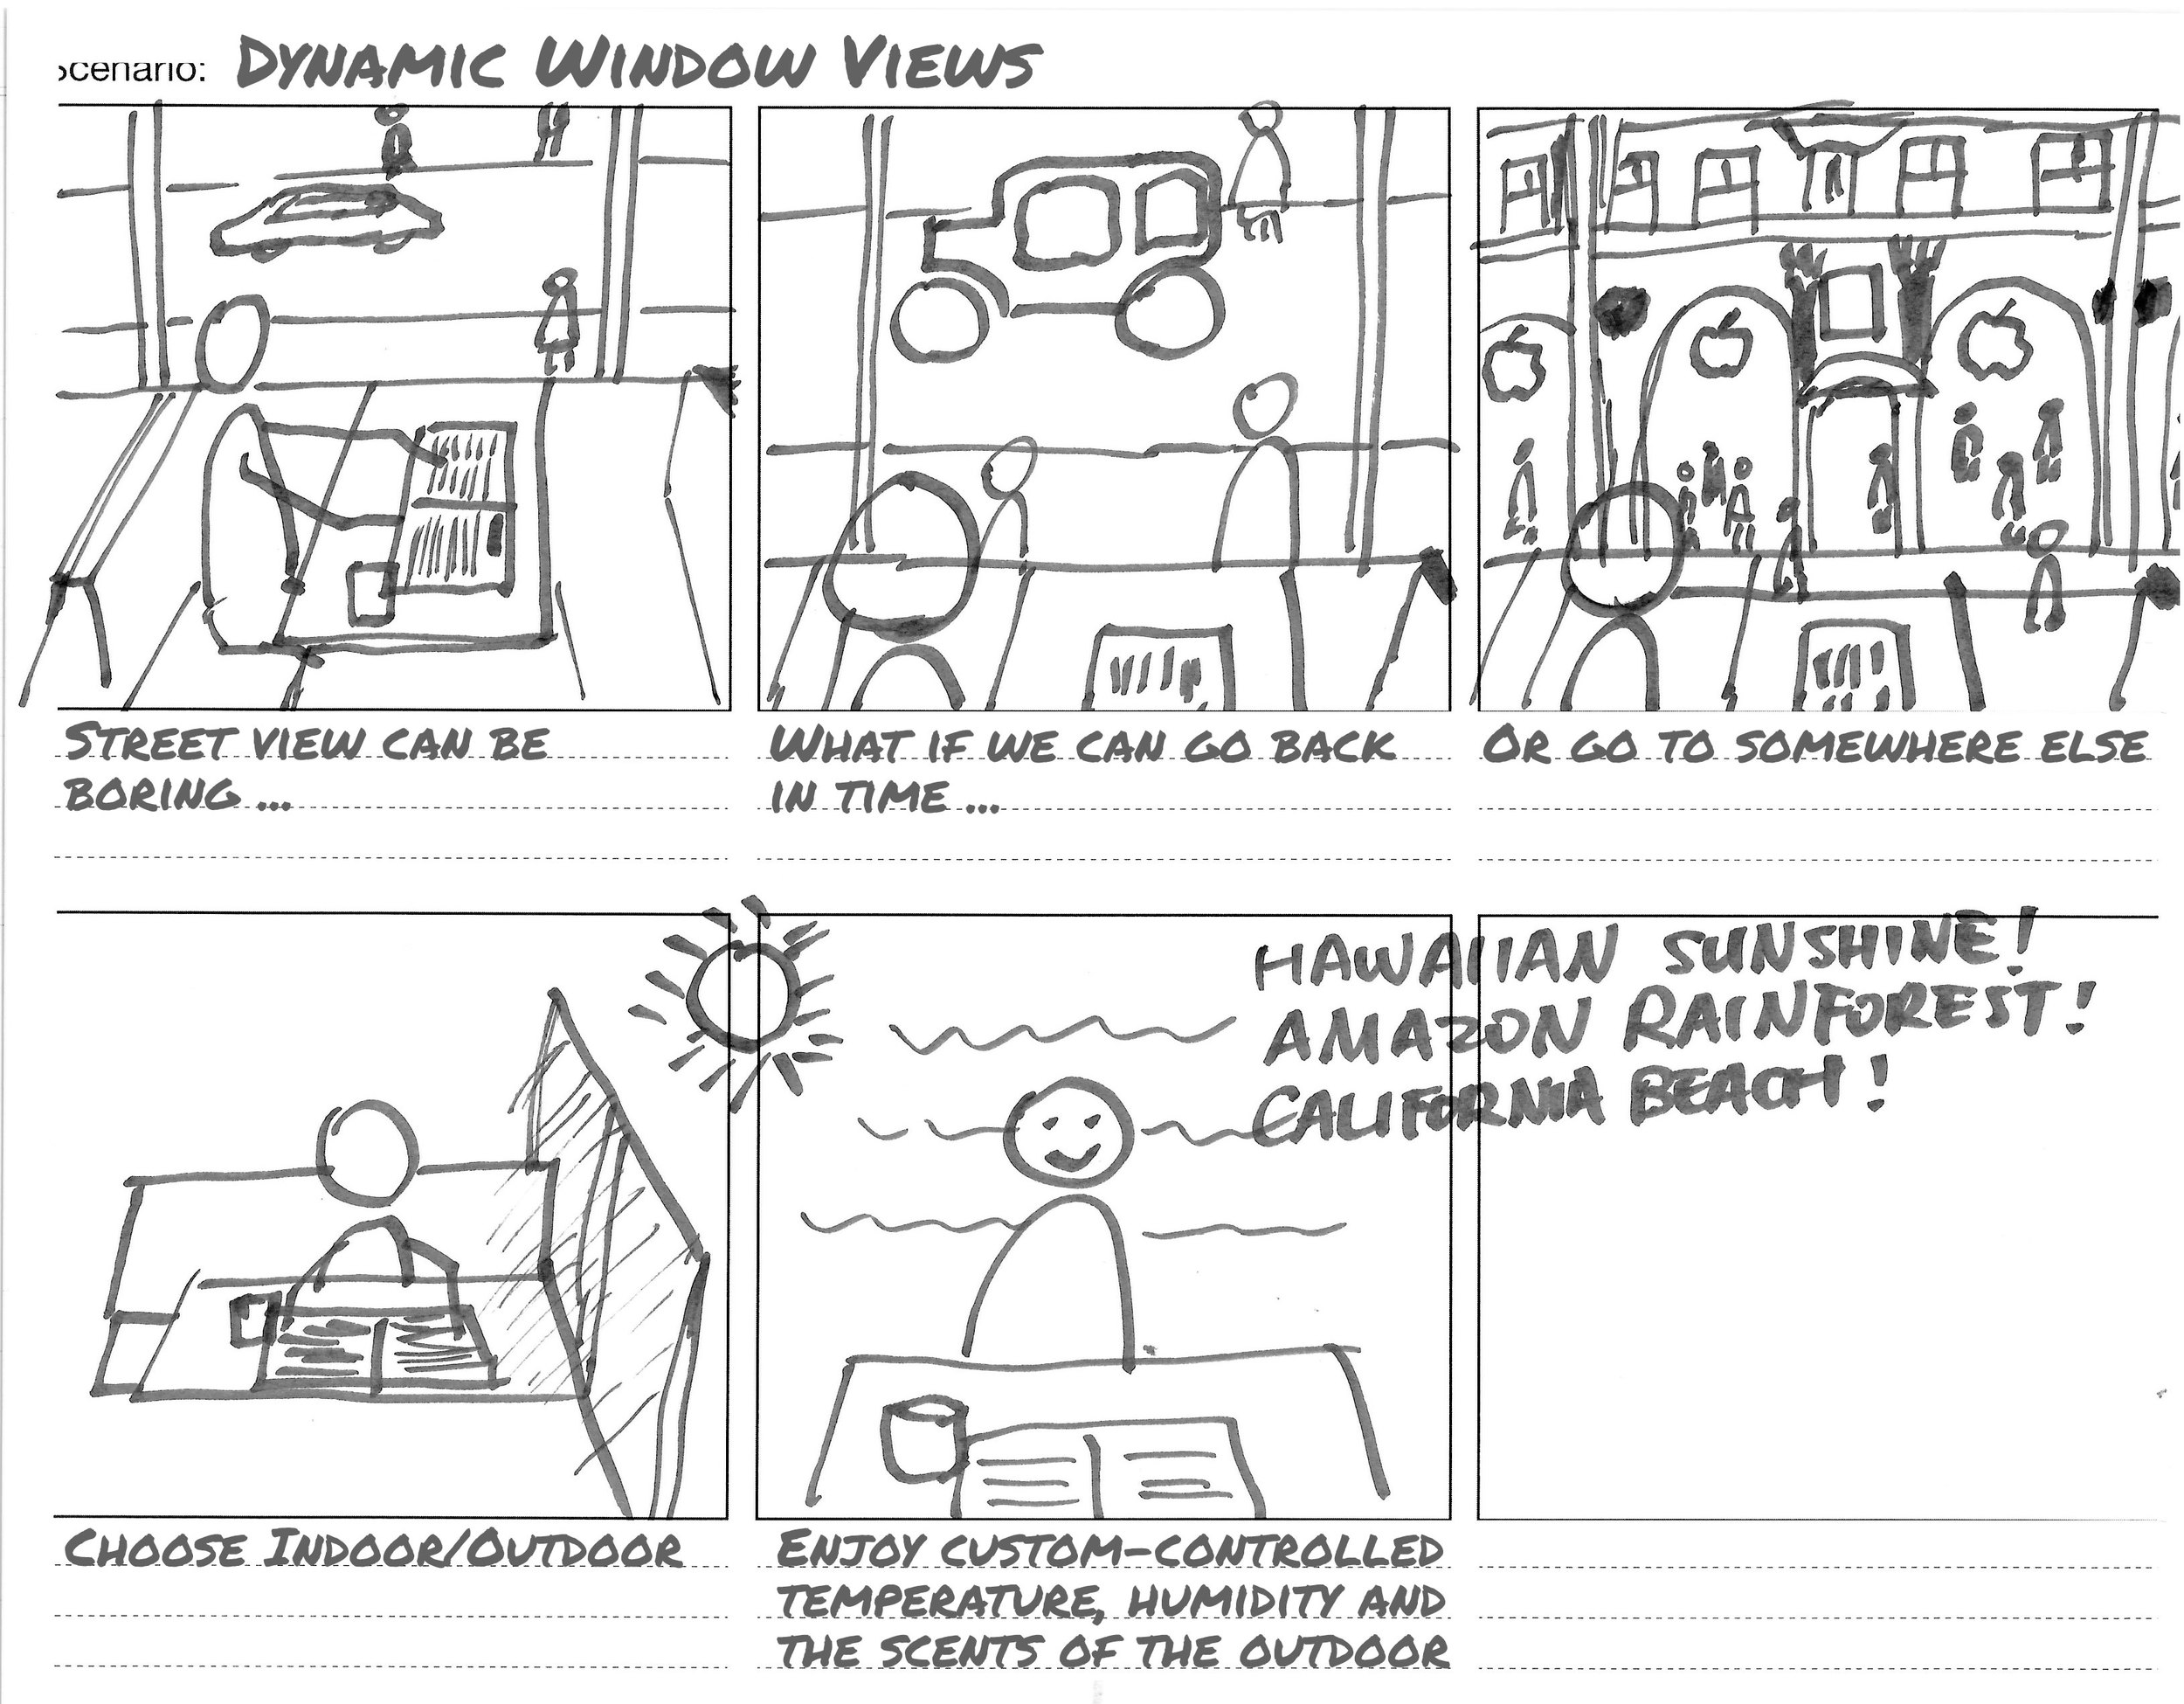 Scenario: DYNAMIC WINDOW VIEWS
STREET VIEW CAN BE
BORING ...
WHAT IF WE CAN GO BACK
IN TIME ...
OR GO TO SOMEWHERE ELSE
HAWAIIAN SUNSHINE!
AMAZON RAINFOREST!
CALIFORNIA BEACH!
CHOOSE INDOOR/OUTDOOR
ENJOY CUSTOM-CONTROLLED
TEMPERATURE, HUMIDITY AND
THE SCENTS OF THE OUTDOOR